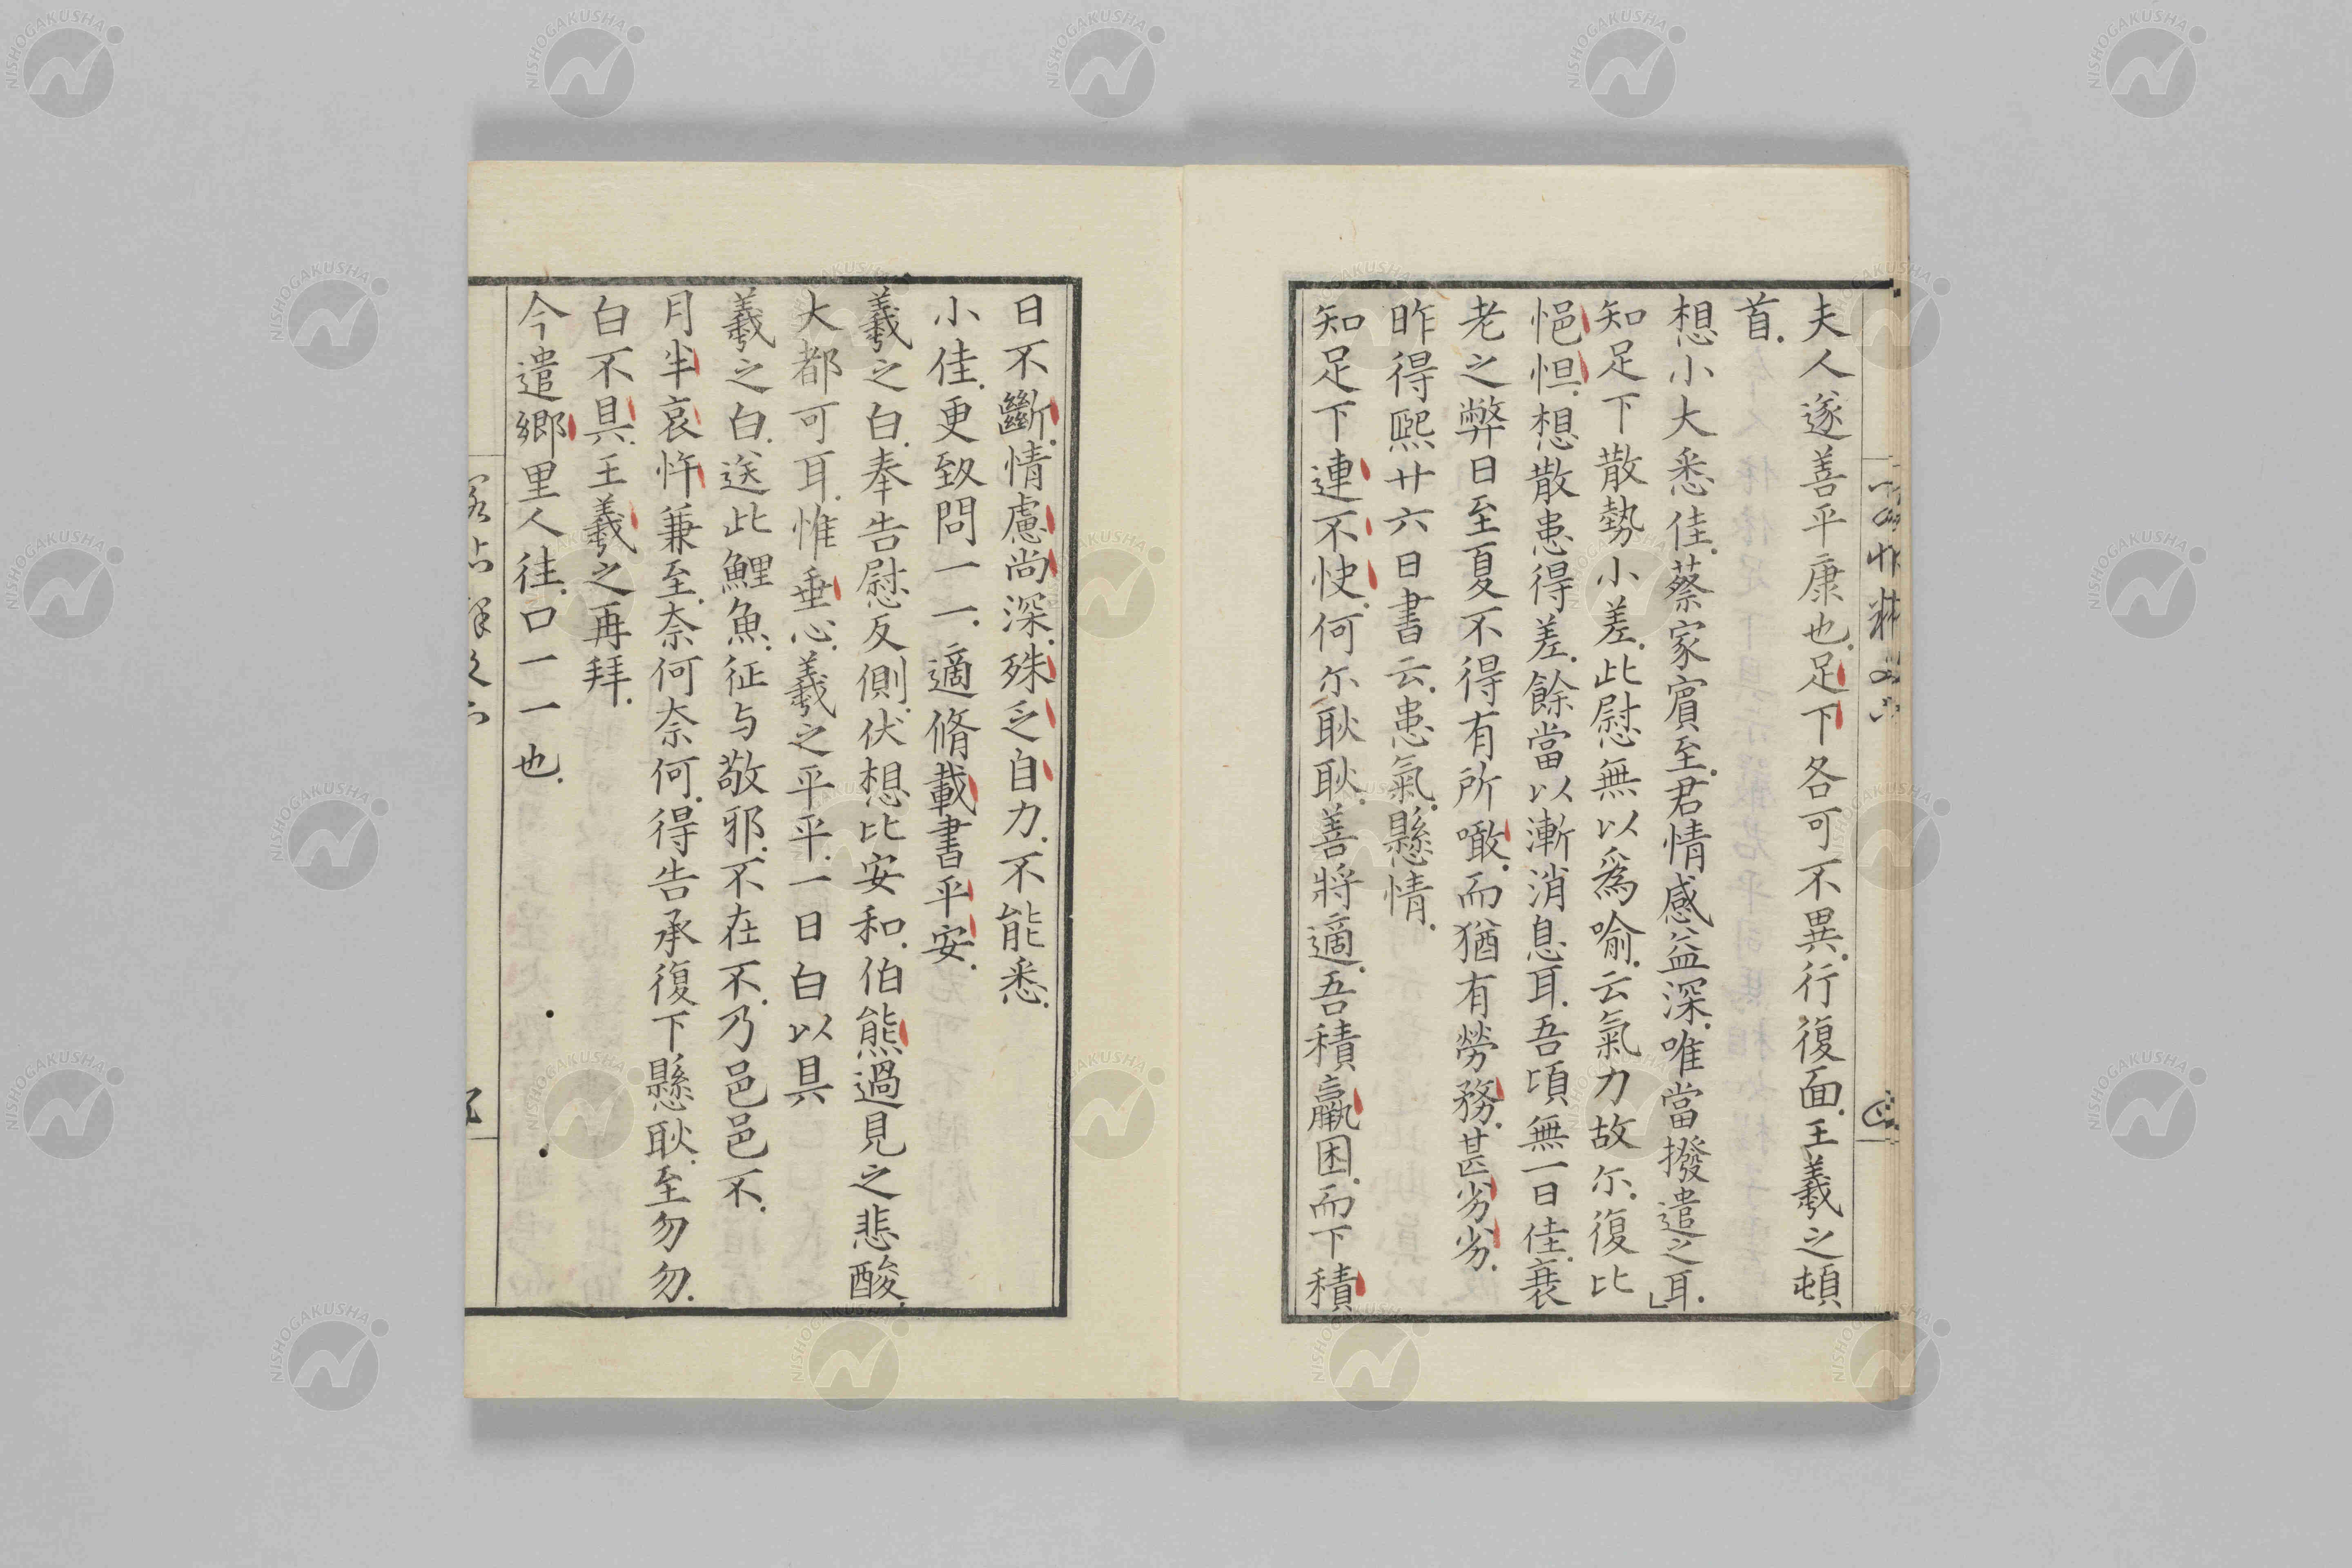 夫人遂善平康也.足下各可不異.行復面.王羲之頓
首.
想小大悉佳.蔡家賓至.君情感益深.唯當撥遣之耳.
知足下散勢小差.此慰無以爲喻.云氣力故尓.復比
悒怛.想散患得差.餘當以漸消息耳.吾頃無一日佳.衰
老之弊日至.夏不得有所噉.而猶有勞務.甚劣劣.
昨得熙廿六日書云.患氣.懸情.
知足下連不快.何尓耿耿.善將適.吾積羸困.而下積
日不斷.情慮尚深.殊乏自力.不能悉.
小佳.更致問一一.適脩載書平安.
羲之白.奉告慰反側.伏想比安和.伯熊過見之悲酸.
大都可耳.惟垂心.羲之平平.一日白以具
羲之白.送此鯉魚.征与敬邪.不在不.乃邑邑不.
月半哀忤兼至.奈何奈何.得告承復下懸耿.至勿勿.
白不具.王羲之再拜.
今遣鄉里人徃.口一一也.
NISHOGAKUSHA